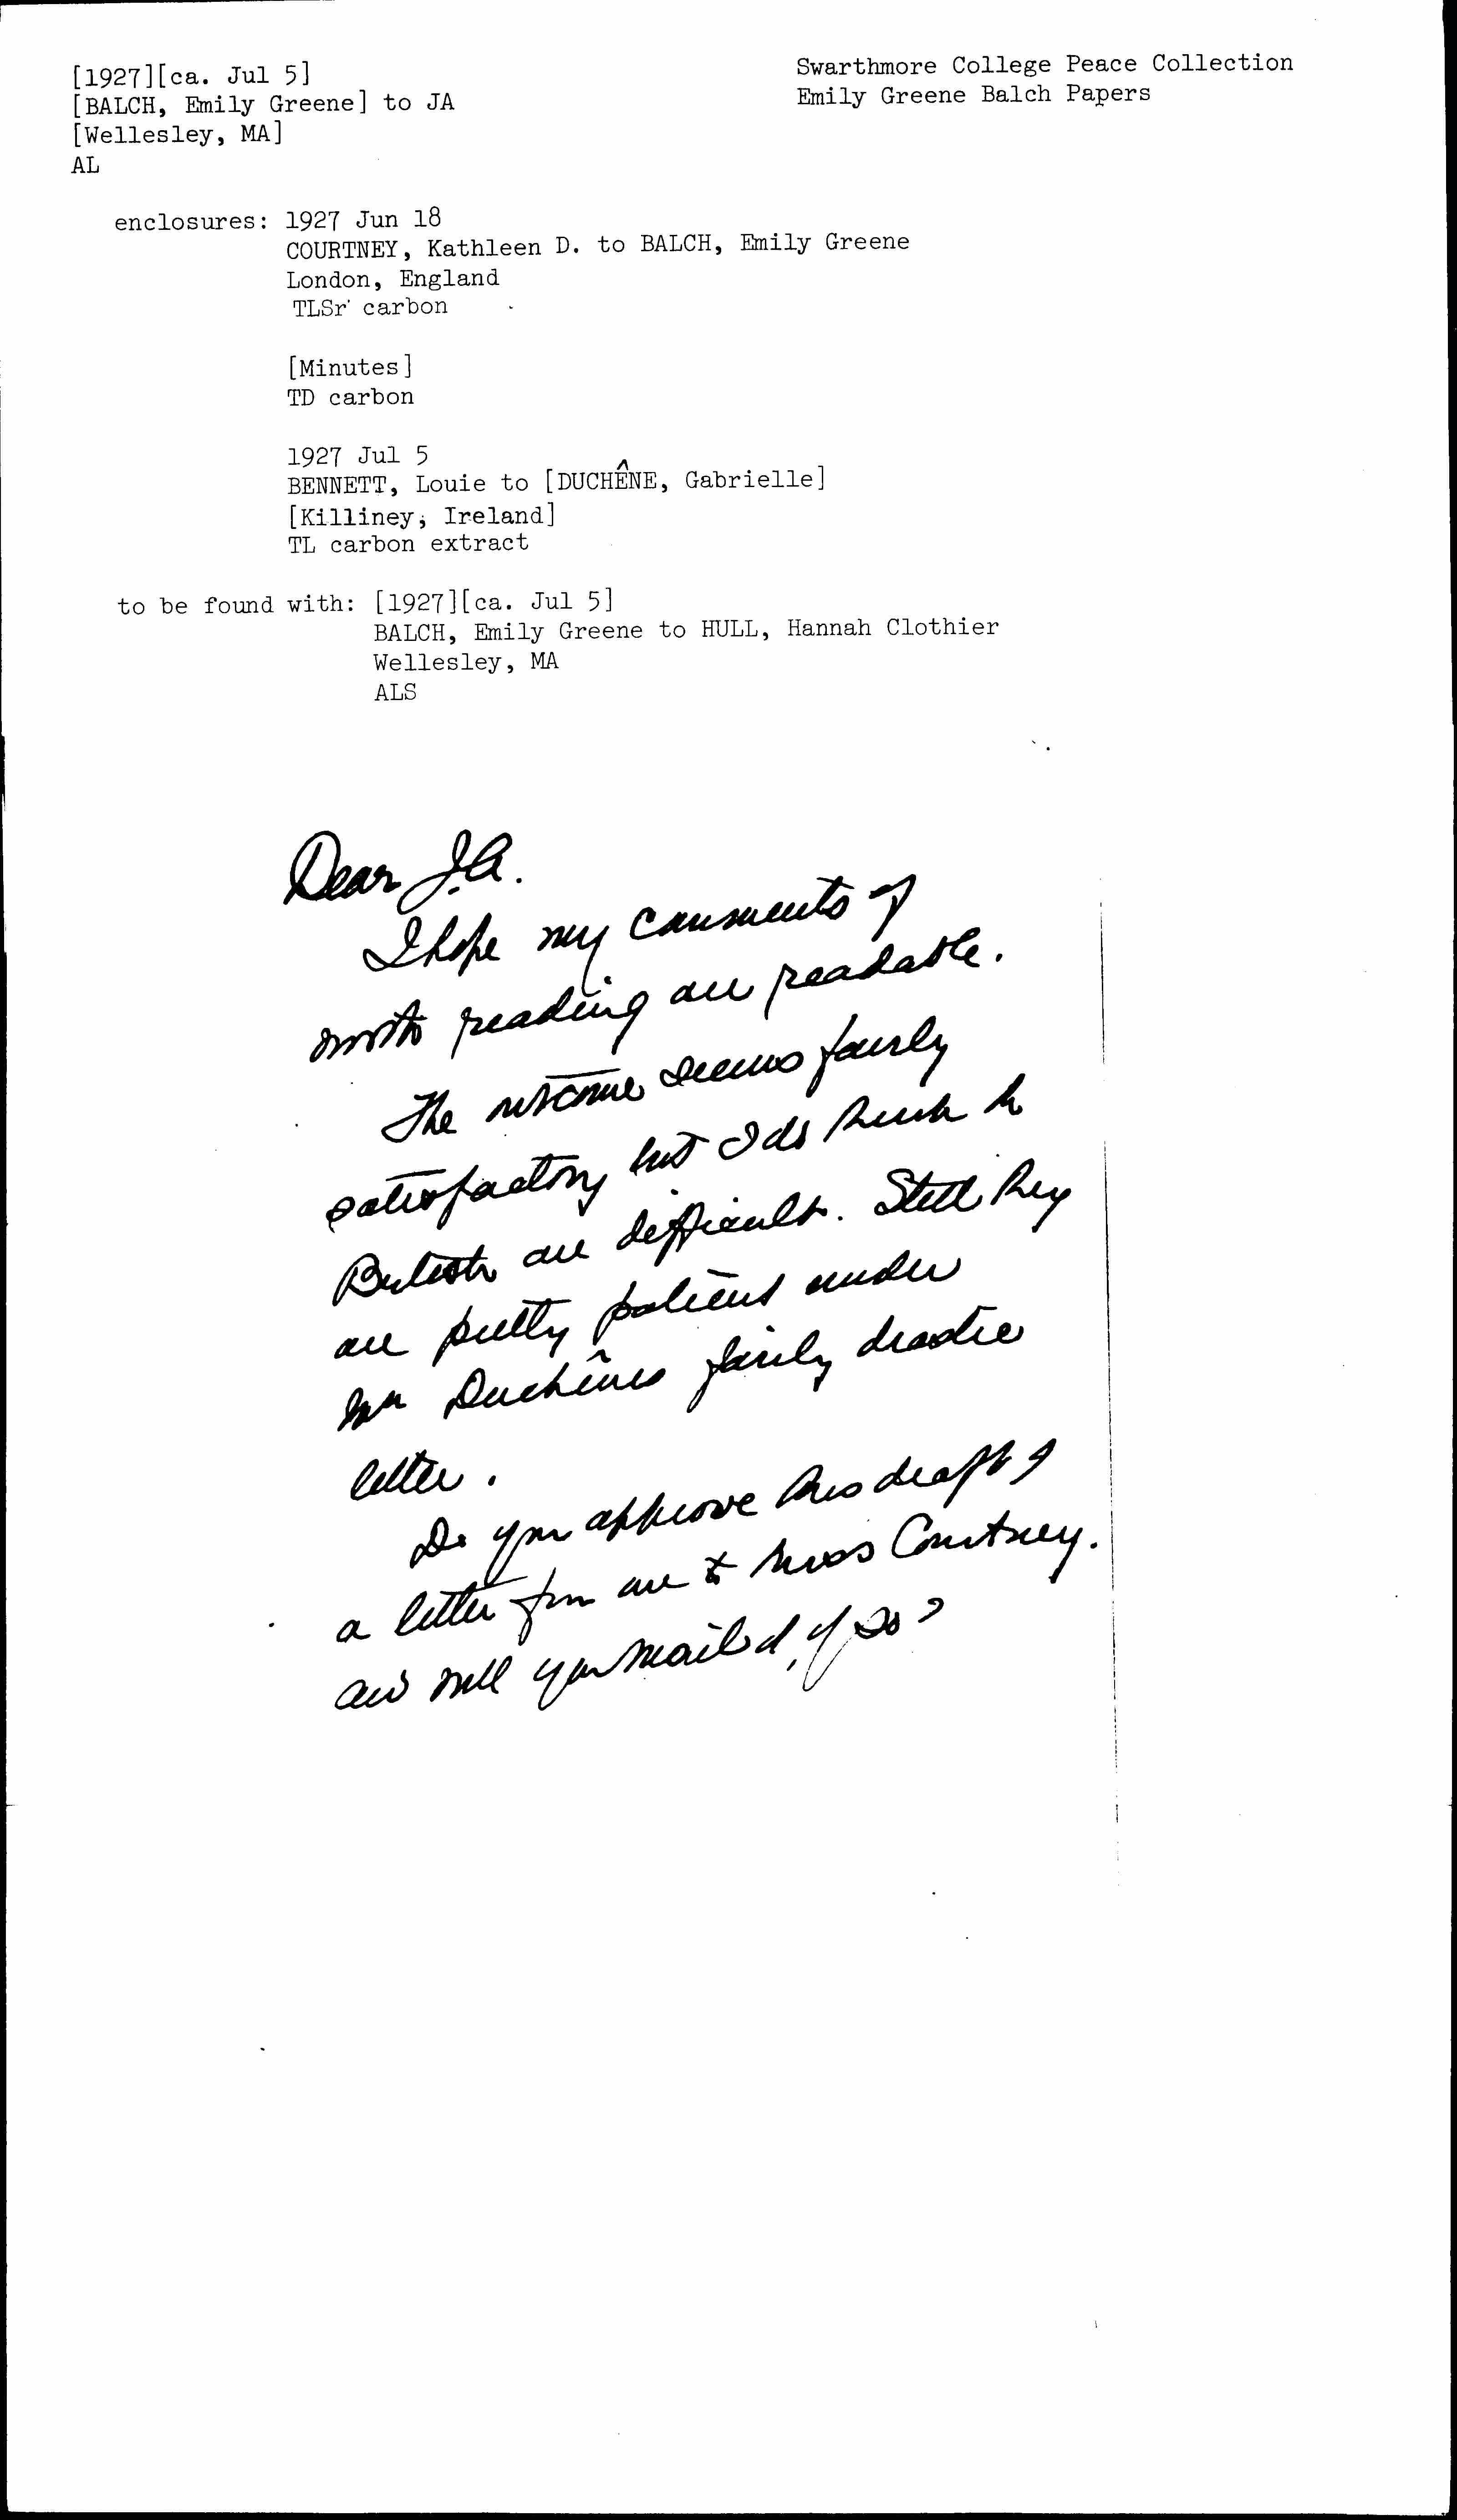 [1927][ca. Jul 5]
[BALCH, Emily Greene] to JA
[Wellesley, MA]
AL
Swarthmore College Peace Collection
Emily Greene Balch Papers
enclosures: 1927 Jun 18
COURTNEY, Kathleen D. to BALCH, Emily Greene
London, England
TLSr carbon
[Minutes]
TD carbon
1927 Jul 5
BENNETT, Louie to [DUCHÊNE, Gabrielle]
[Killiney, Ireland]
TL carbon extract
to be found with: [1927][ca. Jul 5]
BALCH, Emily Greene to HULL, Hannah Clothier
Wellesley, MA
ALS
Dear J.A.
I hope my comments if
worth reading are readable.
The outcome seems fairly
satisfactory but I do think the
British are difficult. Still they
are pretty patient under
Mme Duchênes fairly drastic
letter.
Do you approve this draft of
a letter from me to Miss Courtney.
and will you mail it, if so?